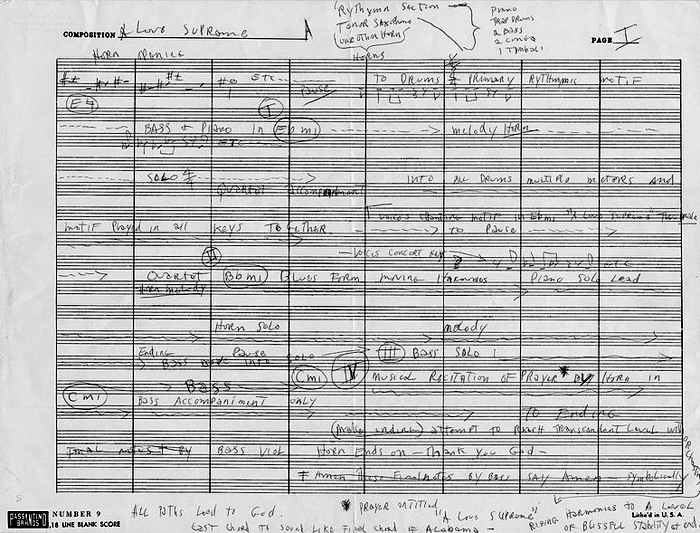 COMPOSITION A Love Supreme
Rythymn Section —
Tenor Saxophone
(one other horn)
Horns
Piano
Trap Drums
2 Bass
2 Conga
1 Timbali
PAGE I
Horn
ETC
Pause
TO DRUMS PRIMARY RYTHMMIC MOTIF
E4
I
BASS & Piano in Ebmi
melody Horn
ETC
SOLO 4/4
Quartet accompaniment
INTO ALL DRUMS multiple meters and
voices chanting motif in Ebmi "A Love Supreme"
motif Played in all Keys Together
to Pause
II
VOICES CONCERT KEY
ETC
Quartet Bbmi Blues Form moving Harmonies
Piano Solo Lead
Horn melody
Horn Solo
melody
Ending Pause
Bass move into solo
III BASS SOLO
Cmi
IV MUSICAL RECITATION OF PRAYER * BY HORN IN
Cmi
BASS
BASS ACCOMPANIMENT ONLY
TO ENDING
(make ending) attempt to Reach Transcendent Level with
Final notes by Bass Viol
Horn Ends on — Thank you God —
Amen These Final notes By Bass Say Amen — symbolically
PASSANTINO
BRANDS
NUMBER 9
18 LINE BLANK SCORE
ALL Paths Lead to God.
* PRAYER entitled
"A Love Supreme"
Last Chord to Sound Like Final Chord of Alabama —
RISING Harmonies To A Level
OF BLISSFUL Stability at end.
Litho'd in U. S. A.